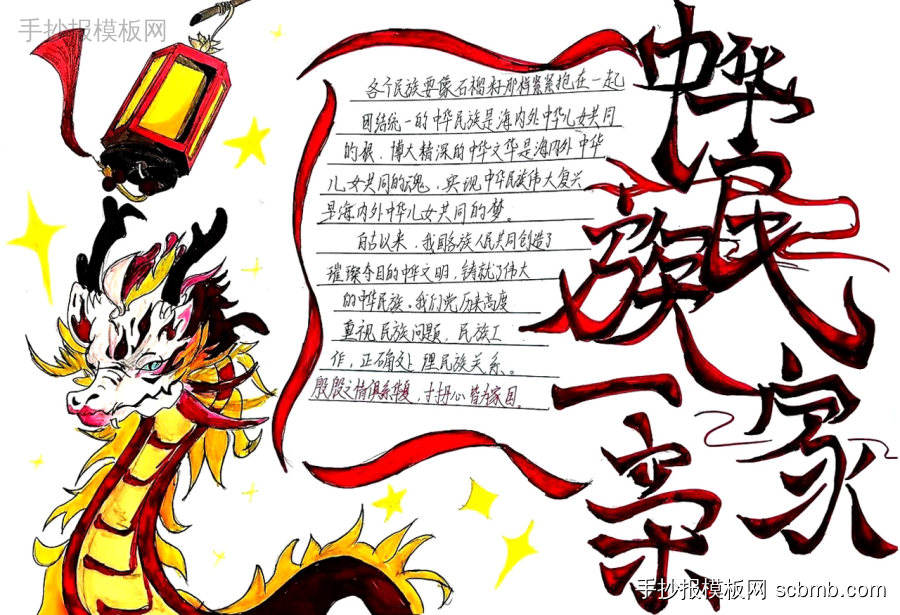 手抄报模板网
各个民族要像石榴籽那样紧紧抱在一起
团结统一的中华民族是海内外中华儿女共同
的根，博大精深的中华文华是海内外中华
儿女共同的魂，实现中华民族伟大复兴
是海内外中华儿女共同的梦。
自古以来，我国各族人民共同创造了
璀璨今目的中华文明，铸就了伟大
的中华民族。我们党历来高度
重视民族问题，民族工
作，正确处理民族关系。
殷殷之情俱系华夏，寸寸丹心皆为家国。
中华
民族
一家
亲
手抄报模板网 scbmb.com